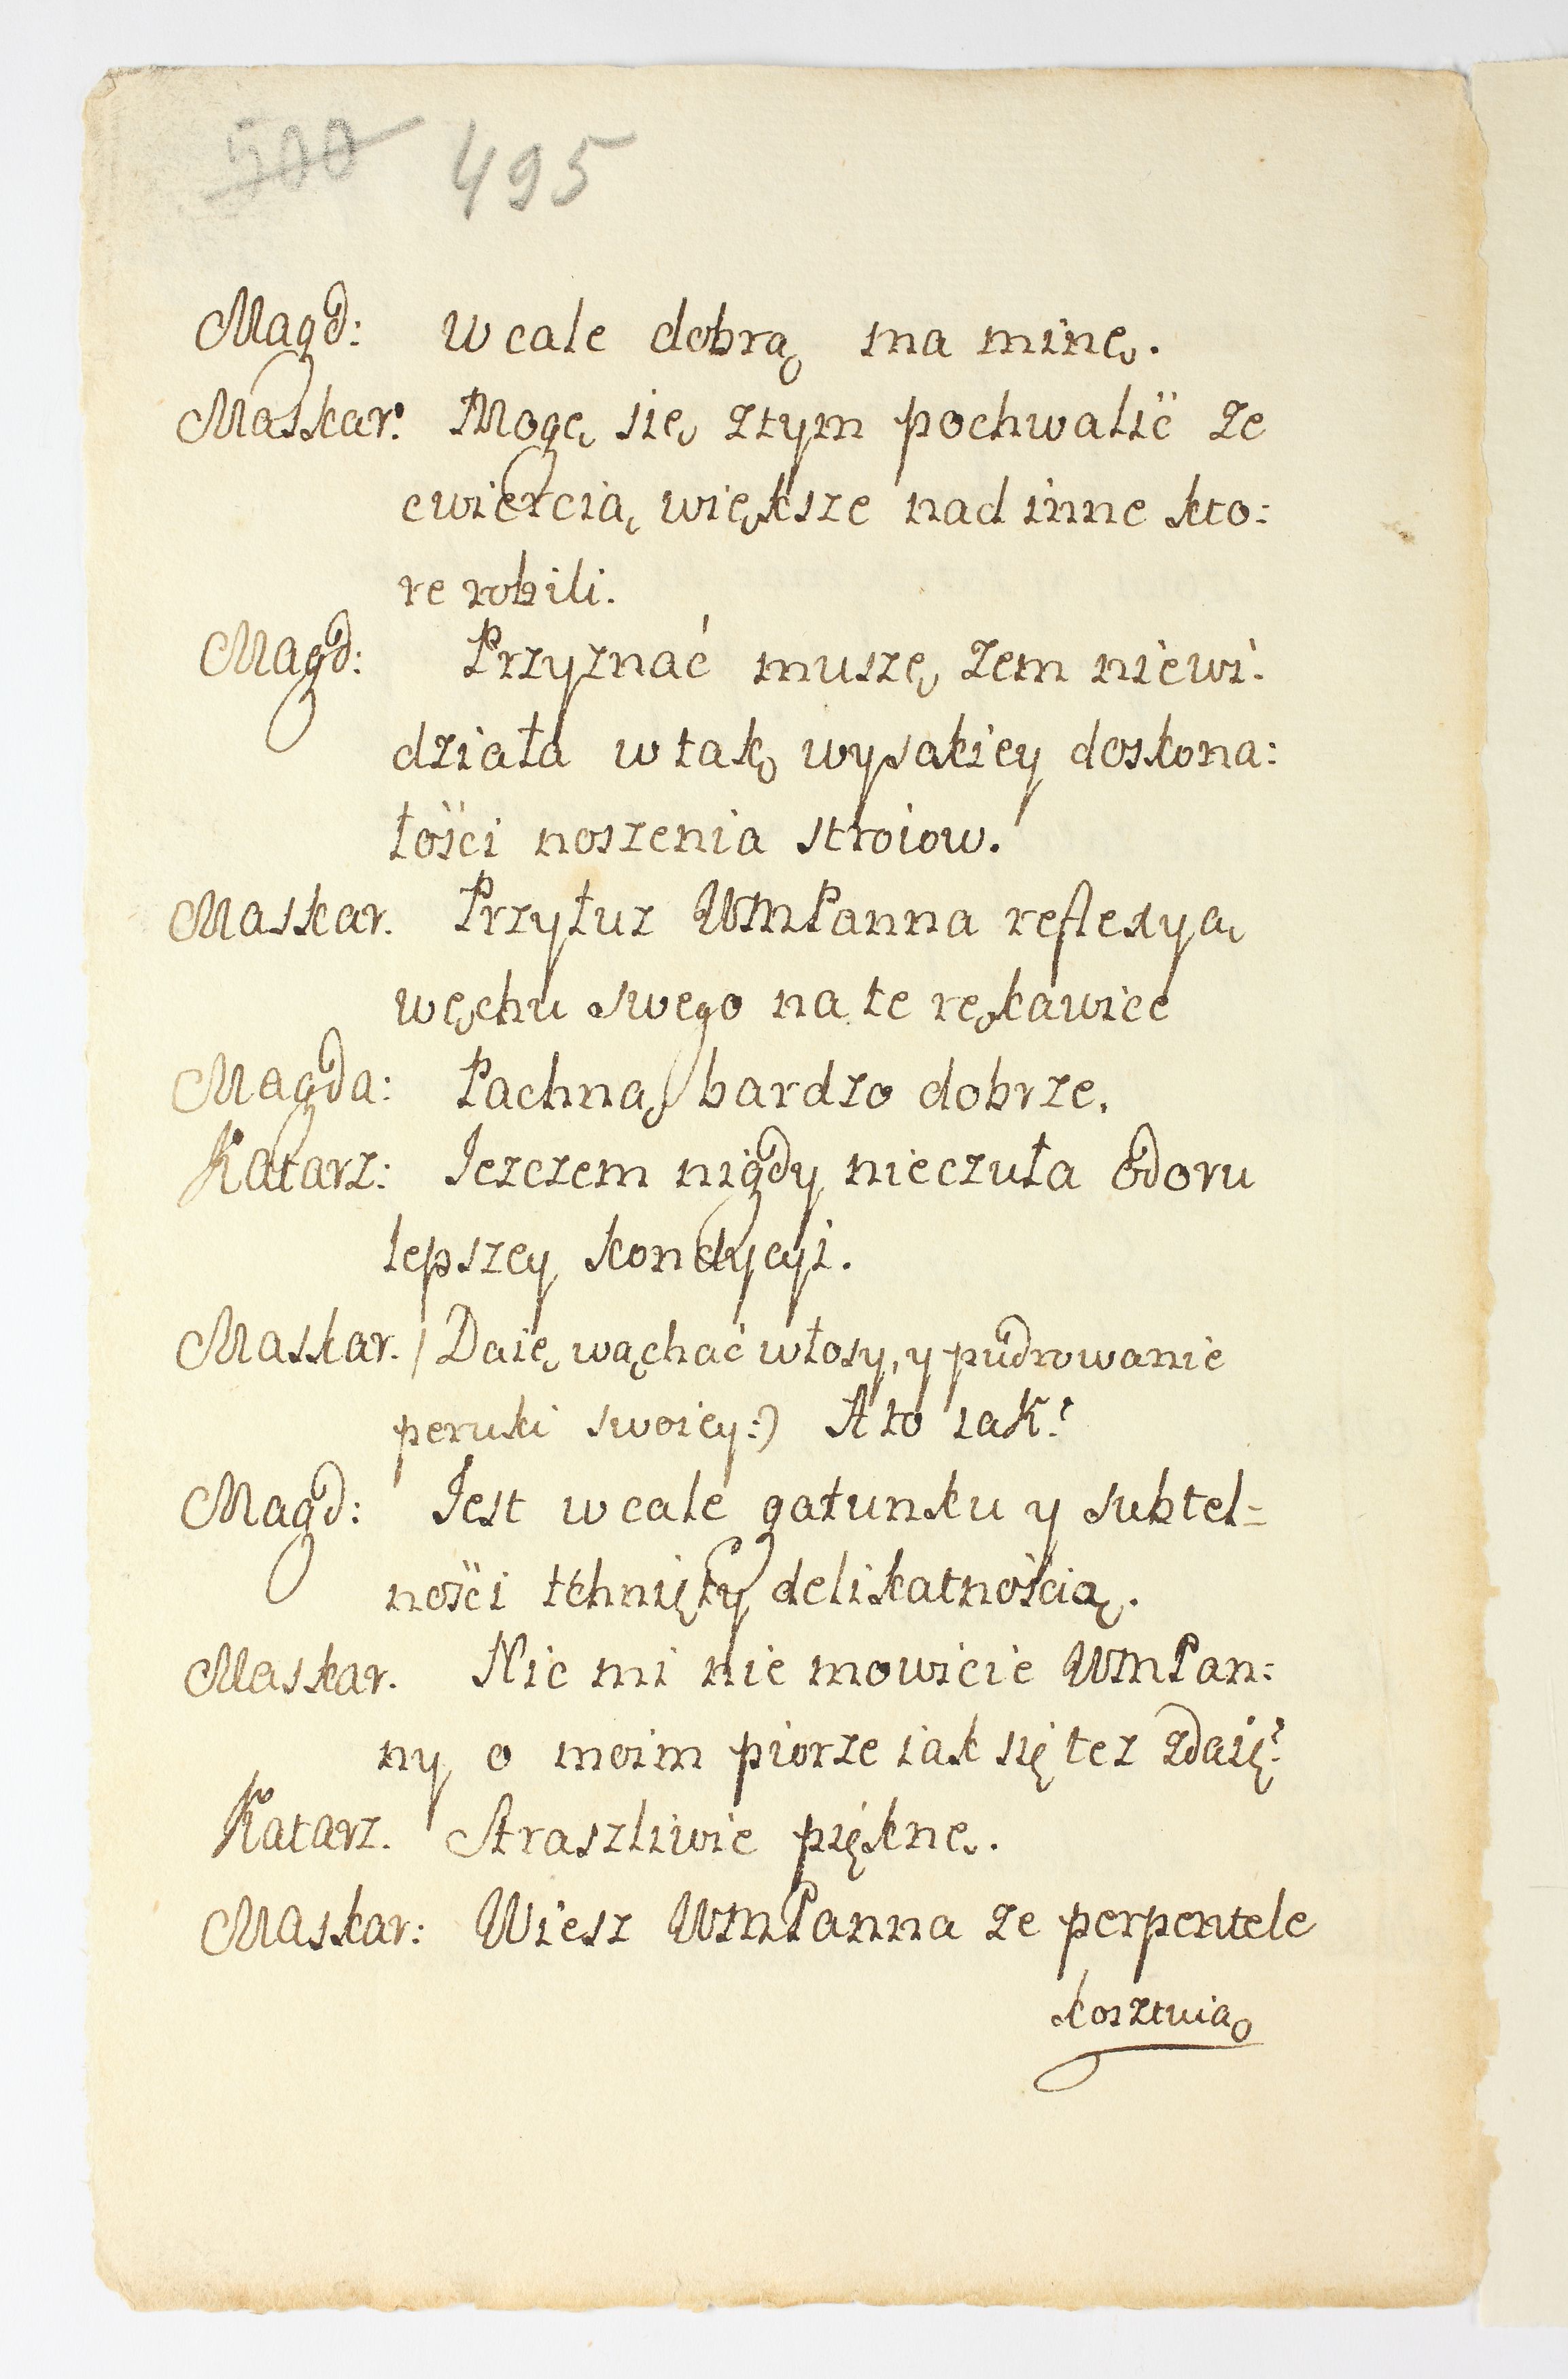 500 495
Magd: W cale dobrą ma minę.
Maskar: Mogę się ztym pochwalić ze
cwiercią większe nad inne kto:
re robili.
Magd: Przyznać muszę zem niewi:
działa w tak wysokiey doskona:
łości noszenia stroiow.
Maskar. Przyłuz WMPanna reflexyą
węchu swego na te rękawice
Magda: Pachną bardzo dobrze.
Katarz: Jezczem nigdy nieczuła odoru
lepszey kondycyi.
Maskar. / Daię wąchać włosy, y pudrowanie
peruki swoiey:) A to iak?
Magd: Jest w cale gatunku y subtel=
ności tchnięty delikatnością.
Maskar. Nic mi nie mowicie WMPan:
ny o moim piorze iak się tez zdaię?
Katarz. Straszliwie piękne.
Maskar: Wiesz WMPanna ze perpentele
kosztuią